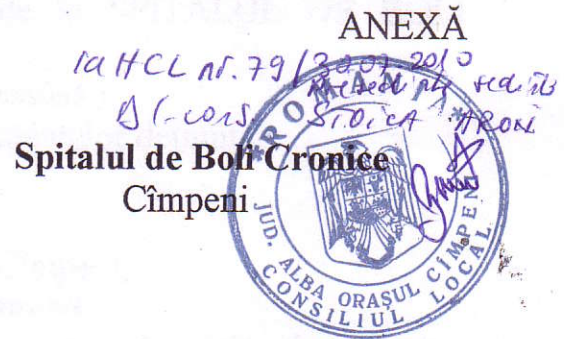 ANEXĂ
la HCL nr. 79/30.07.2010
Președinte ședință
Dl. cons. STOICA ARON
Spitalul de Boli Cronice
Cîmpeni
* ROMÂNIA *
JUD. ALBA ORAȘUL CÎMPENI
CONSILIUL LOCAL